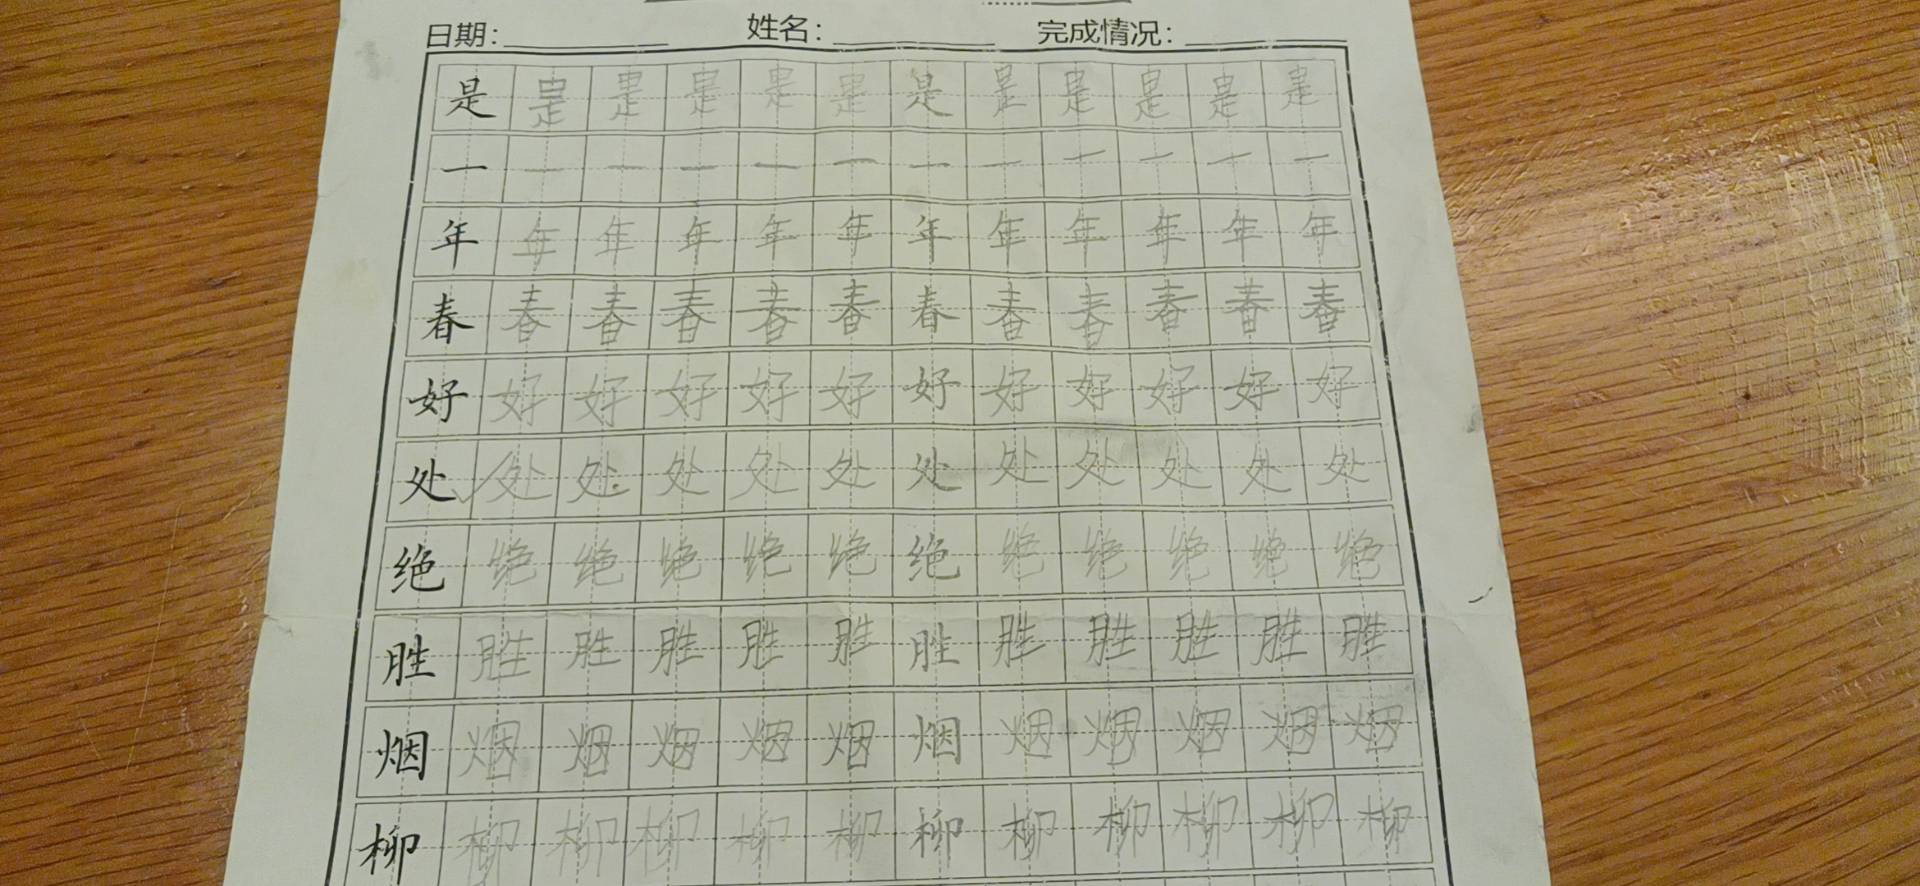 日期: 姓名: 完成情况:
是 是 是 是 是 是 是 是 是 是 是 是
一 一 一 一 一 一 一 一 一 一 一 一
年 年 年 年 年 年 年 年 年 年 年 年
春 春 春 春 春 春 春 春 春 春 春 春
好 好 好 好 好 好 好 好 好 好 好 好
处 处 处 处 处 处 处 处 处 处 处 处
绝 绝 绝 绝 绝 绝 绝 绝 绝 绝 绝 绝
胜 胜 胜 胜 胜 胜 胜 胜 胜 胜 胜 胜
烟 烟 烟 烟 烟 烟 烟 烟 烟 烟 烟 烟
柳 柳 柳 柳 柳 柳 柳 柳 柳 柳 柳 柳